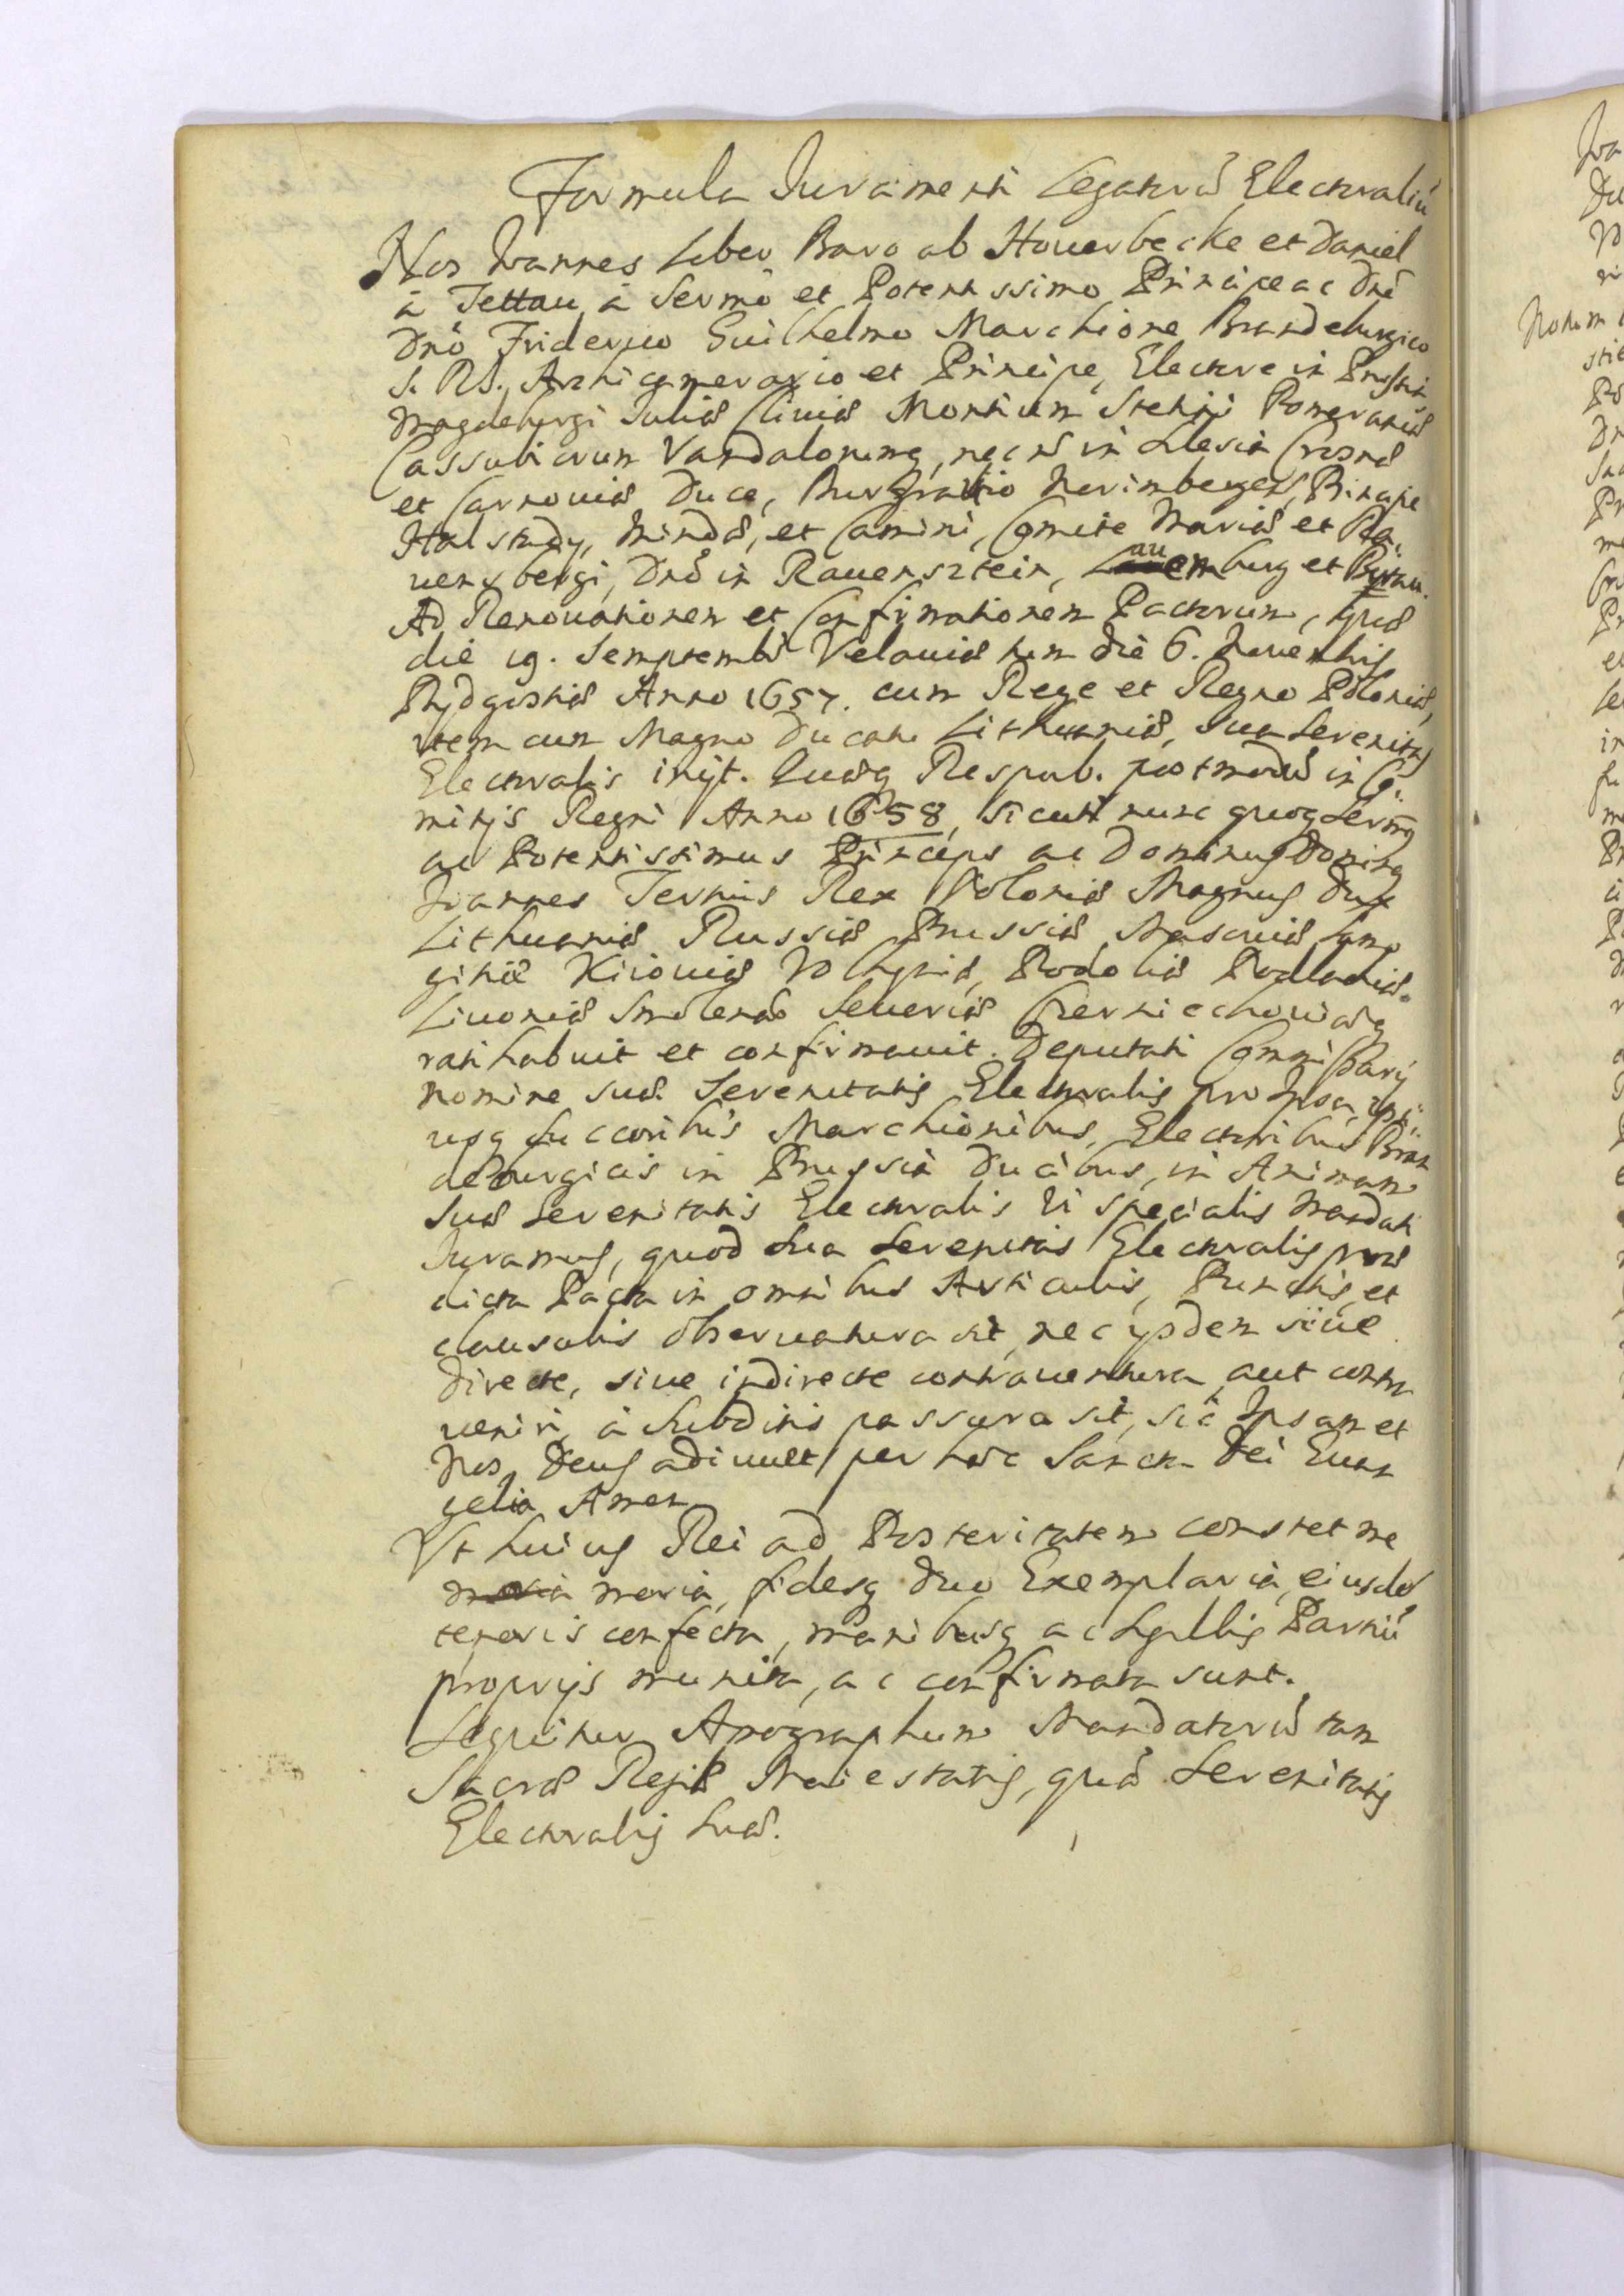 Formula Iuramenti Legatorũ Electoraliũ
Nos Ioannes Liber Baro ab Houerbecke et Daniel
à Tettau, à Sermo et Potentissimo Principe ac Dnõ
Dnõ Friderico Guilhelmo Marchione Brandeburgico
S. R. I. Archicamerario et Principe, Electore in Prussia
Magdeburgi Iuliæ Cliuiæ Montium Stetini Pomeraniæ
Cassubiorum Vandalorumq, necnõ in Silesia Crosnæ
et Carnouiæ Duce, Burgrabio Norimbergen, Principe
Halstady, Mindæ, et Camini, Comite Marciæ et Ra„
uensbergi, Dnõ in Rauensztein, Lauenburg et Bytau.
Ad Renouationem et Confirmationem Pactorum, quæ
die 19. Semptembr Velauiæ tum die 6. Nouembris
Bydgostiæ Anno 1657. cum Rege et Regno Poloniæ,
item cum Magno Ducatu Lithuaniæ, Sua Serenitas
Electoralis inijt. Quæq Respub. postmodũ in Co„
mitijs Regni Anno 1658, sicuti nunc quoq Sermq
ac Potentissimus Princeps ac Dominus Dominq
Ioannes Tertius Rex Poloniæ Magnus Dux
Lithuaniæ Russiæ Prussiæ Masouiæ Samo
gitiæ Kiiouiæ Volhyniæ, Podoliæ Podlachiæ
Liuoniæ Smolensō Seueriæ Czerniechouiæq
ratihabuit et confirmauit. Deputati Commissarij
nomine Suæ Serenitatis Electoralis pro Ipsa, ipsi„
usq Succoribus Marchionibus, Electoribus Bran
deburgicis in Prussia Ducibus, in Animam
Suæ Serenitatis Electoralis Vi specialis Mandati
Iuramus, quod Sua Serenitas Electoralis præ
dicta Pacta in omnibus Articulis, Punctis, et
clausulis obseruatura sit, nec ijsdem siue
directe, siue indirecte contrauentura, aut contra
ueniri, à Subditis passura sit, sic Ipsam et
Nos, Deus adiuuet, per hæc Sancta Dei Euan
gelia, Amen
Vt huius Rei ad Posteritatem constet me
moria, fidesq duo Exemplaria, eiusdẽ
tenoris confecta, manibusq ac Sigillis Partiũ
proprijs munita, ac confirmata sunt.
Sequitur Apographum Mandatorũ tam
Sacræ Regiæ Maiestatis, quã Serenitatis
Electoralis Suæ.